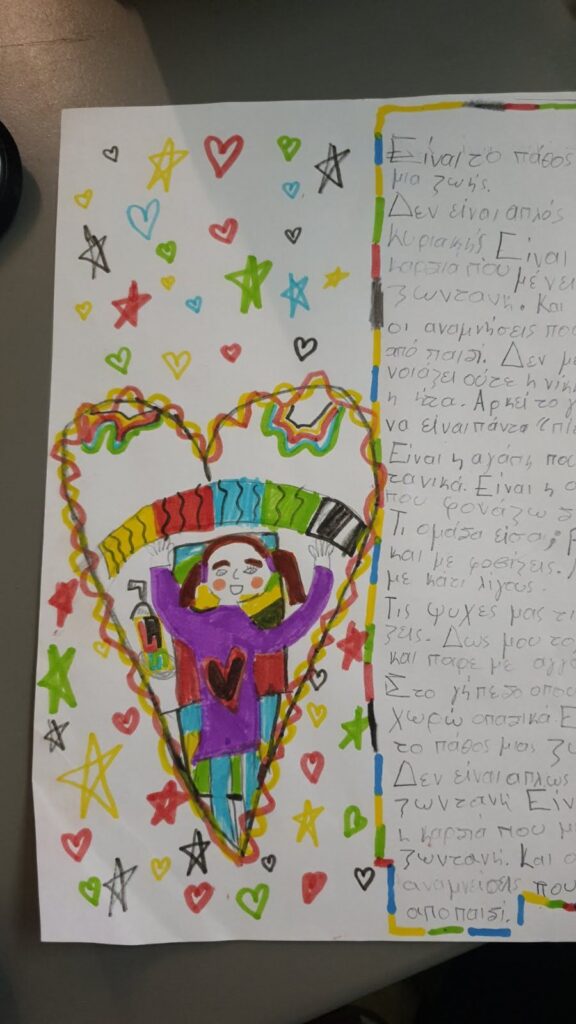 Είναι το πάθος
μια ζωής.
Δεν είναι απλός
Κυριακής Είναι
καρδια που μένει
ζωντανή. Και
οι αναμνήσεις που
από παιδί. Δεν με
νοιάζει ούτε η νίκη
η ήτα. Αρκεί το γ
να είναι πάντα
Είναι η αγάπη που
τανικά. Είναι η ο
που φονάζω
Τι ομάδα είσαι;
και με φοβίζεις.
με κάτι λίγως.
Τις ψυχες μας τι
ζεις. Δως μου το
και παρε με αγγ
Στο γήπεδο οπου
χωρώ οπαδικά Ε
το πάθος μιας ζω
Δεν είναι απλως
ζωντανή Είν
η καρδιά που μ
ζωντανή. Και ο
αναμνείσεις που
απο παιδί.